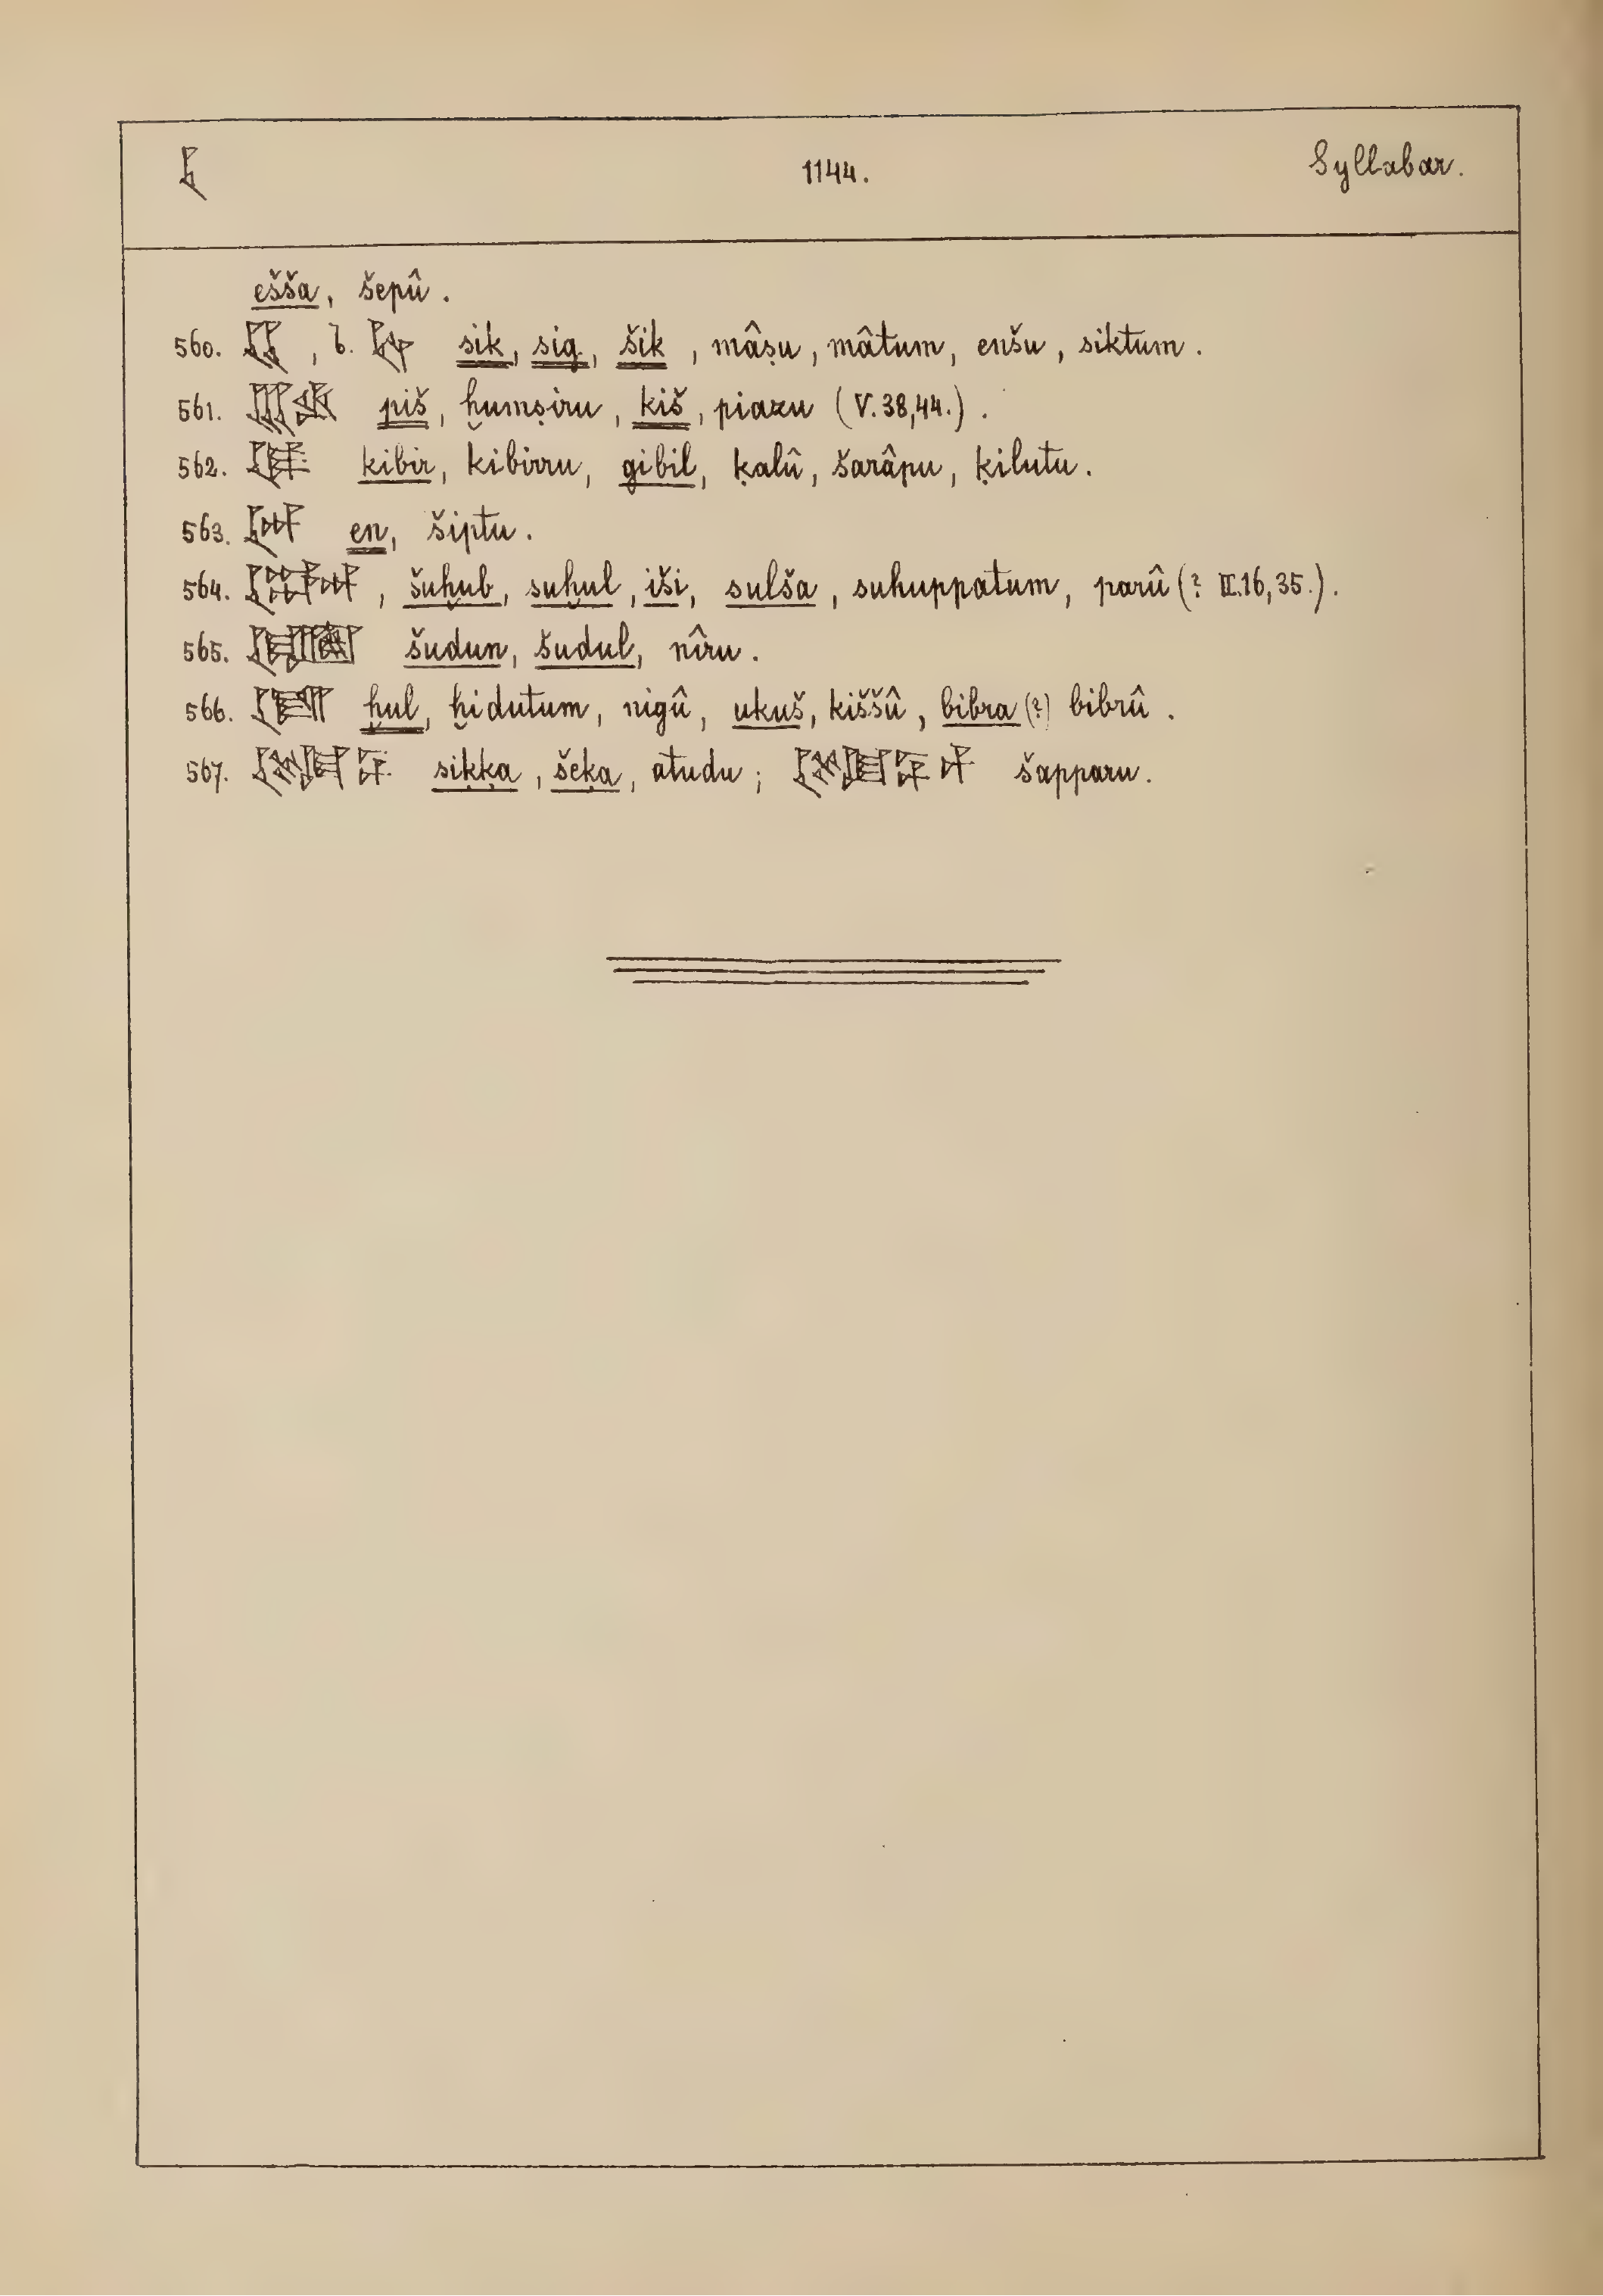 1144. Syllabar.
ešša, šepû.
560. , b. sik, sig, šik, mâṣu, mâtum, enšu, siktum.
561. piš, ḫumṣiru, kiš, piazu (V.38,44.).
562. kibir, kibirru, gibil, ḳalû, šarâpu, ḳilutu.
563. en, šiptu.
564. , šuḫub, suḫul, iši, sulša, suhuppatum, parû (? II.16,35.).
565. šudun, šudul, nîru.
566. ḫul, ḫidutum, nigû, ukuš, kiššû, bibra (?) bibrû.
567. siḳḳa, šeḳa, atudu; šapparu.